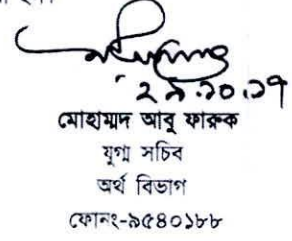 ২৯.১০.১৭
মোহাম্মদ আবু ফারুক
যুগ্ম সচিব
অর্থ বিভাগ
ফোনঃ-৯৫৪০১৮৮